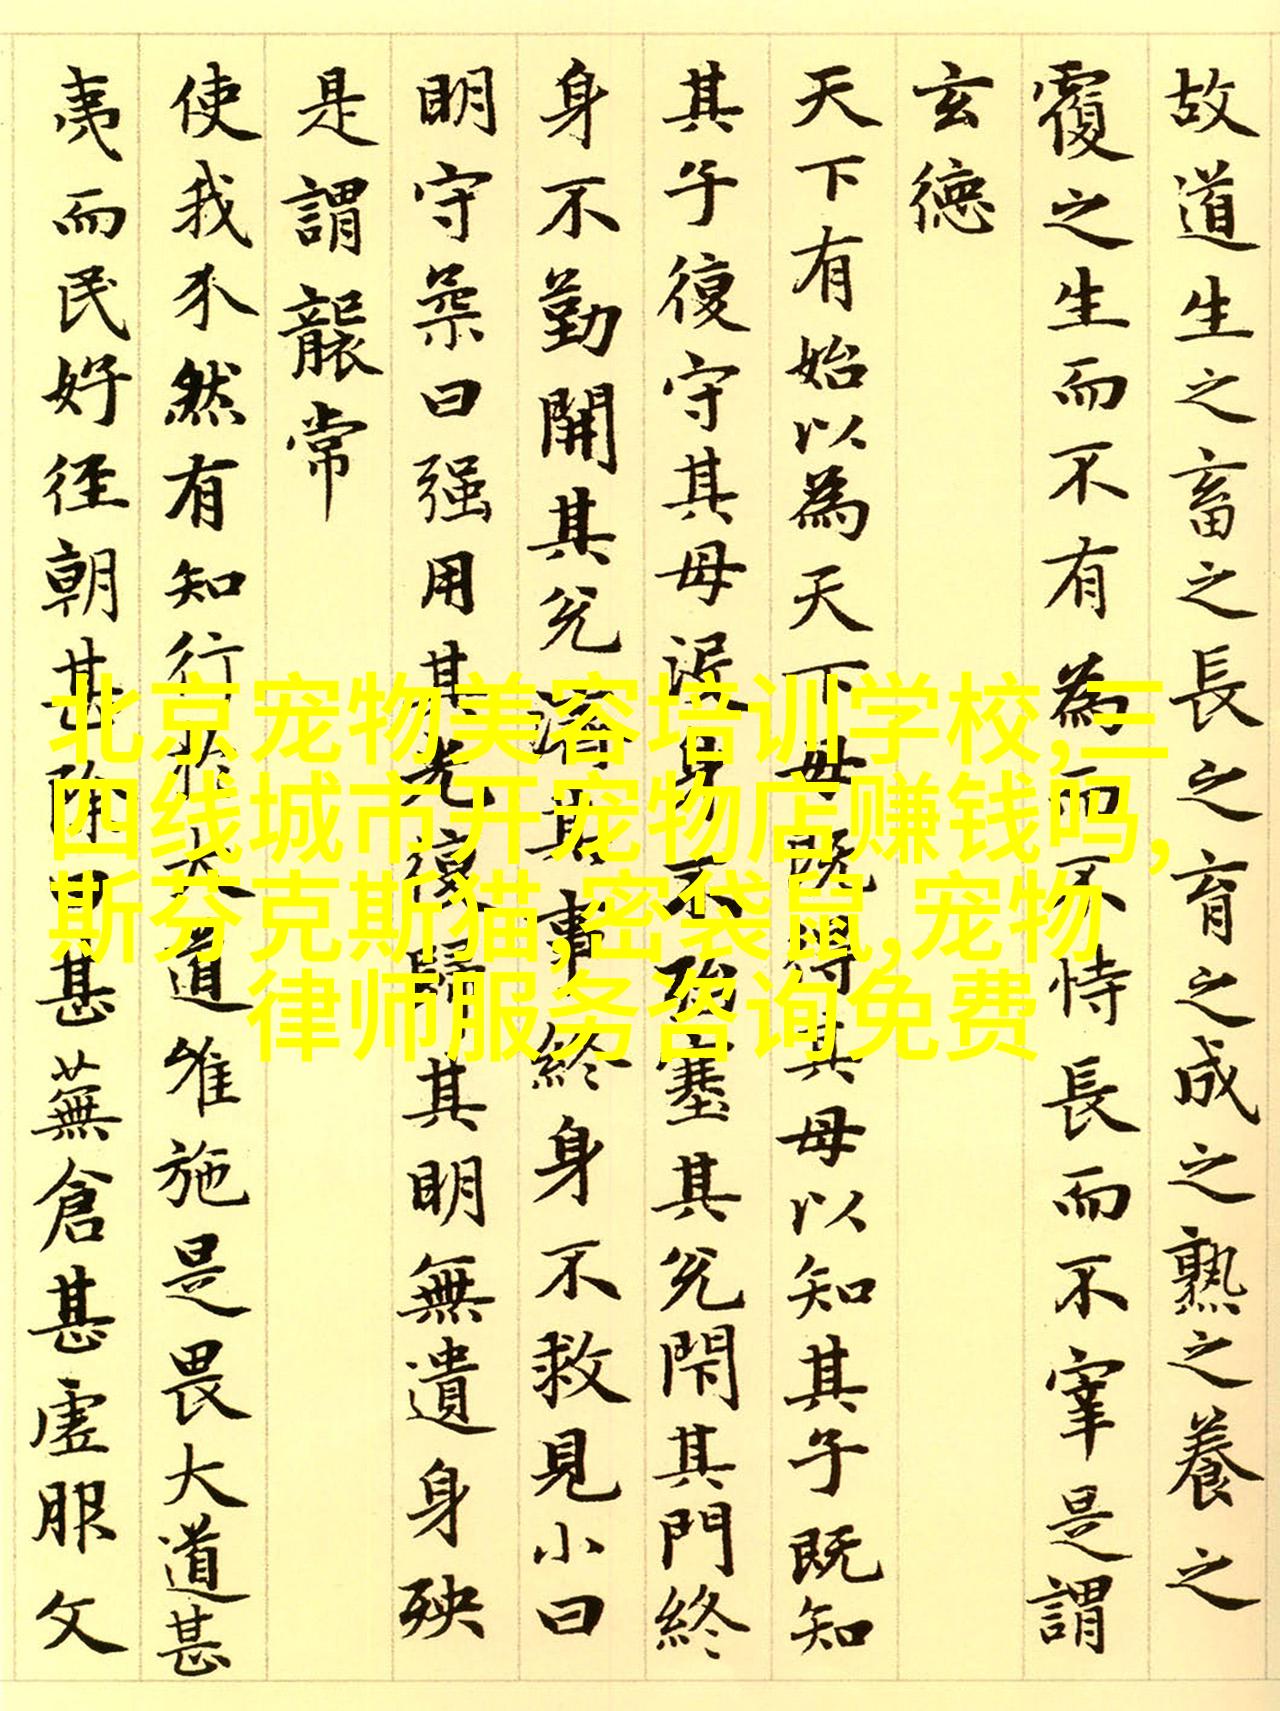 故道生之畜之長之育之成之熟之養之
覆之生而不有為而不恃長而不宰是謂
玄德
天下有始以為天下母既得其母以知其子既知
其子復守其母沒身不殆塞其兊閇其門終
身不勤開其兊濟其事終身不救見小曰
明守柔曰强用其光復歸其明無遺身殃
是謂襲常
使我介然有知行於大道唯施是畏大道甚
夷而民好徑朝甚除田甚蕪倉甚虛服文
北京宠物美容培训学校,三
四线城市开宠物店赚钱吗,
斯芬克斯猫,密袋鼠,宠物
律师服务咨询免费